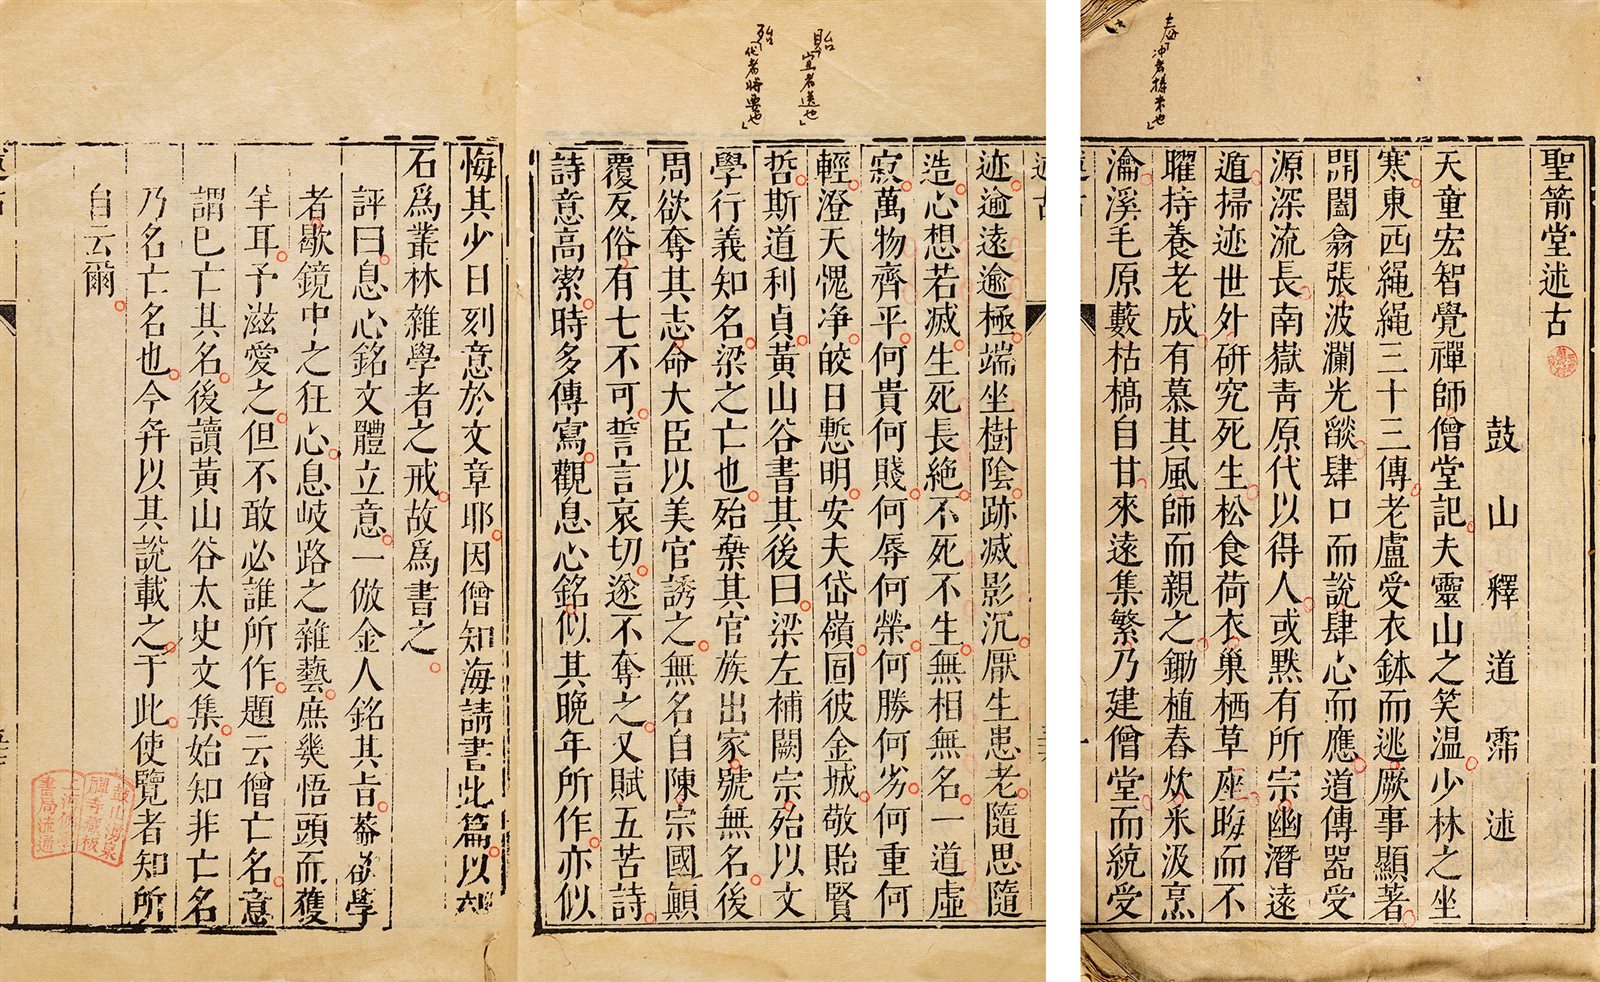 舂「冲者擣米也」
聖箭堂述古
鼓山釋道霈述
天童宏智覺禪師僧堂記夫靈山之笑溫少林之坐
寒東西繩繩三十三傳老盧受衣鉢而逃厥事顯著
開闔翕張波瀾光燄肆口而說肆心而應道傳器受
源深流長南嶽靑原代以得人或默有所宗幽潛遠
遁掃迹世外硏究死生松食荷衣巢栖草座晦而不
曜持養老成有慕其風師而親之鋤植舂炊米汲烹
瀹溪毛原藪枯槁自甘來遠集繁乃建僧堂而統受
貽「宜者送也」
殆「代者將要也」
述古
迹逾遠逾極端坐樹陰跡滅影沉厭生患老隨思隨
造心想若滅生死長絶不死不生無相無名一道虛
寂萬物齊平何貴何賤何辱何榮何勝何劣何重何
輕澄天愧净皎日慙明安夫岱嶺固彼金城敬貽賢
哲斯道利貞黃山谷書其後曰梁左補闕宗殆以文
學行義知名梁之亡也殆棄其官族出家號無名後
周欲奪其志命大臣以美官誘之無名自陳宗國顚
覆反俗有七不可誓言哀切遂不奪之又賦五苦詩
詩意高潔時多傳寫觀息心銘似其晩年所作亦似
悔其少日刻意於文章耶因僧知海請書此篇以
石爲叢林雜學者之戒故爲書之
評曰息心銘文體立意一倣金人銘其旨葢欲學
者歇鏡中之狂心息岐路之雜藝庶幾悟頭而獲
羊耳予滋愛之但不敢必誰所作題云僧亡名意
謂已亡其名後讀黃山谷太史文集始知非亡名
乃名亡名也今幷以其說載之于此使覽者知所
自云爾